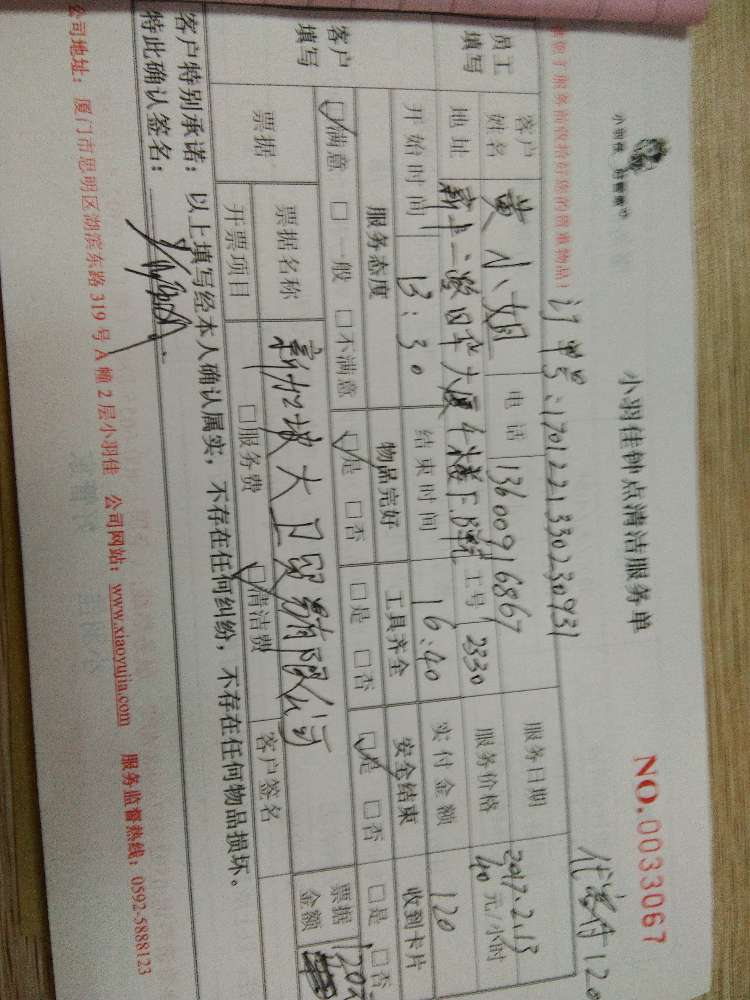 小羽佳 好管家
小羽佳钟点清洁服务单
NO.0033067
订单号:170122133023093​1
代客付120
员工填写
客户姓名 黄小姐 电话 13600916867 服务日期 2017.2.13
地址 工号 2330 服务价格 40元/小时
开始时间 13:30 结束时间 16:40 实付金额 120
客户填写
服务态度 物品完好 工具齐全 安全结束 收到卡片
☑满意 □一般 □不满意 ☑是 □否 □是 □否 ☑是 □否 □是 □否
票据 票据名称 新加坡大卫贸易有限公司 票据金额 120元
开票项目 □服务费 ☑清洁费 客户签名
客户特别承诺:以上填写经本人确认属实,不存在任何纠纷,不存在任何物品损坏。
特此确认签名:
公司地址:厦门市思明区湖滨东路319号A幢2层小羽佳 公司网站:www.xiaoyujia.com 服务监督热线:0592-5888123